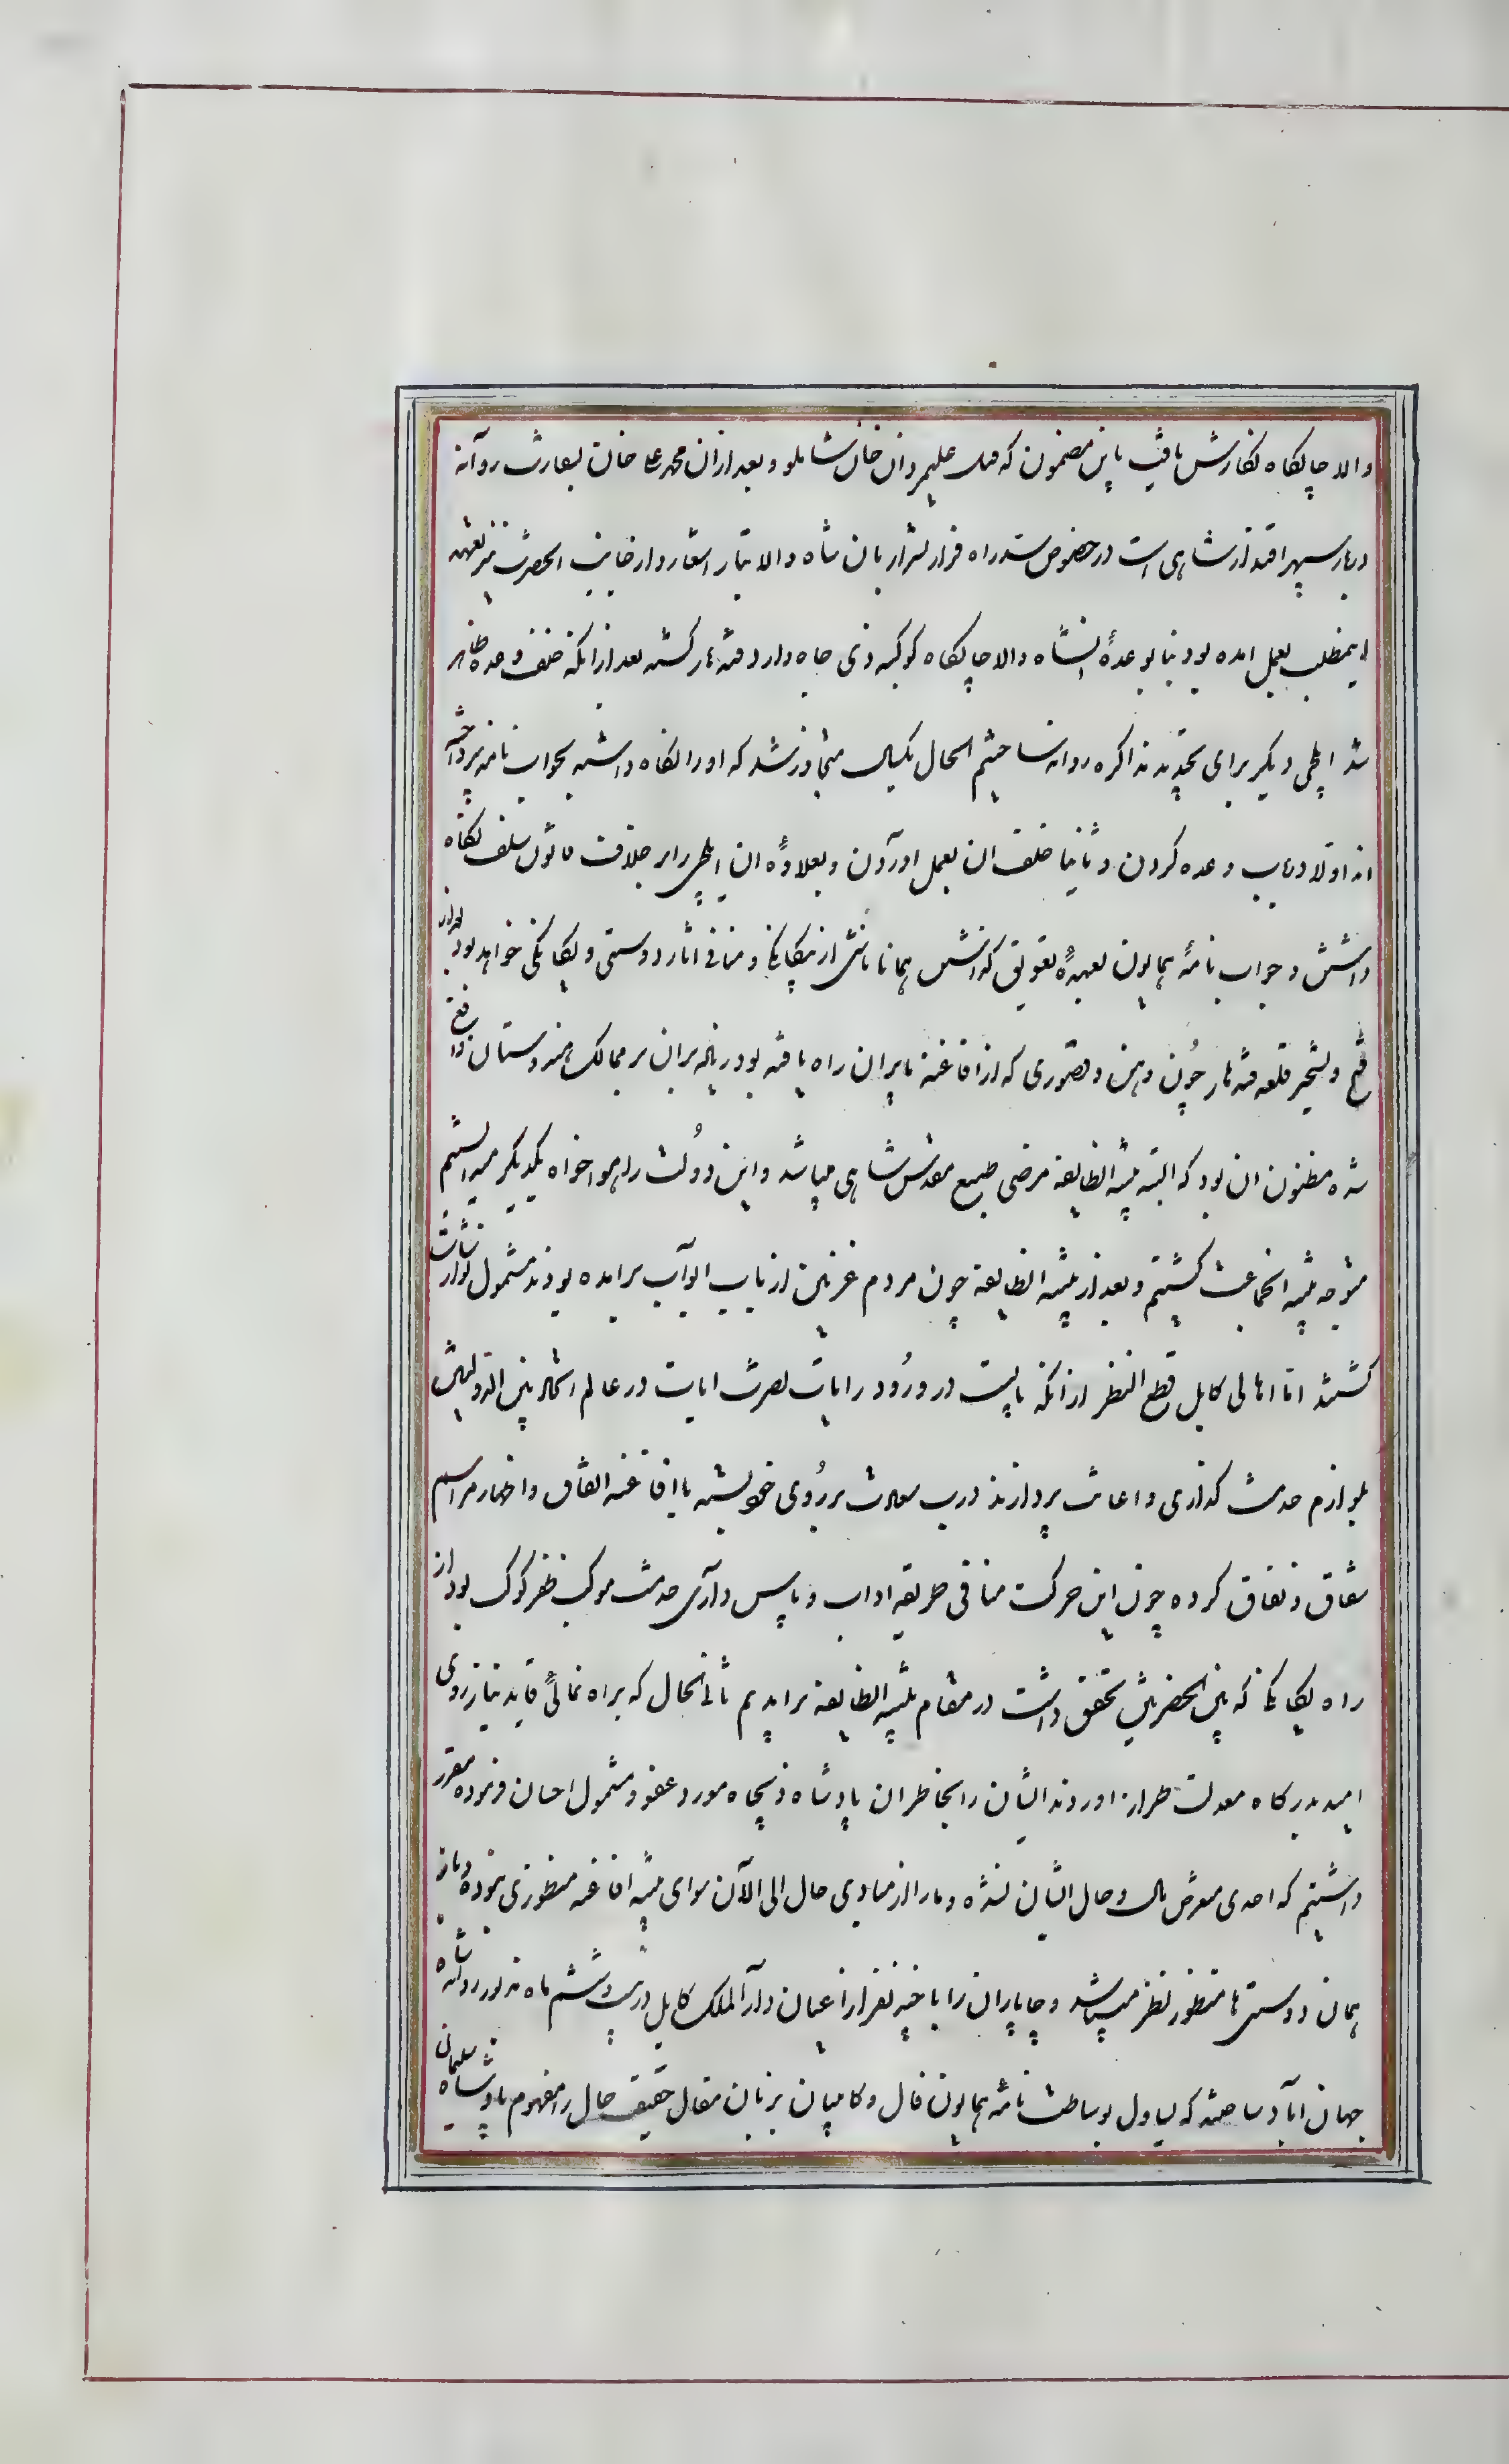 والا جایگاه نگارش یافت باین مضمون که قبل علیمردان خان شاملو و بعد از آن محمد علی خان بسفارت روانه
دربار سپهر اقتدار شاهی است در خصوص سد راه فرار اشرار بان شاه والا تبار اشعار و از جانب انحضرت نیز تعهد
اینمطلب بعمل امده بود بنا بوعدۀ انشاه والا جایگاه کوکبه ذی جاه وارد قندهار گشته بعد از انکه خلف وعده ظاهر
شد ایلچی دیگر برای تجدید مذاکره روانه ساختیم الحال یکسال متجاوز شد که او را نگاه داشته بجواب نامه نپرداخته
اند اولا در باب وعده کردن و ثانیا خلف ان بعمل اوردن و بعلاوۀ ان ایلچی را بر خلاف قانون سلف نگاه
داشتن و جواب نامۀ همایون بعهدۀ تعویق گذاشتن همانا ناشی از بیگانگی و منافی اثار دوستی و یگانگی خواهد بود بعد از
فتح و تسخیر قلعه قندهار چون وهن و قصوری که از افاغنه بایران راه یافته بود زیاده بر ان بر ممالک هندوستان واقع
شده مظنون ان بود که البته تنبیه انطایفه مرضی طبع مقدس شاهی میباشد و این دولت را هواخواه یکدیگر میدانستیم
متوجه تنبیه انجماعت گشتیم و بعد از تنبیه انطایفه چون مردم غزنین از باب ایاب برامده بودند مشمول نوازشات
گشتند اما اهالی کابل قطع النظر از انکه بایست در ورود رایات نصرت ایات در عالم اتحاد بین الدولتین
بلوازم خدمت گذاری و اعانت پردازند درب معادات بر روی خود بسته با افاغنه اتفاق و اظهار مراسم
شقاق و نفاق کرده چون این حرکت منافی طریقه اداب و پاس دارآی خدمت موکب ظفر کوکب بود از
راه یگانگی که بین الحضرتین تحقق داشت در مقام تنبیه انطایفه برامدیم تا انحال که براه نمائی قاید نیاز روی
امید بدرگاه معدلت طراز اوردند ایشان را بخاطر ان پادشاه ذیجاه مورد عفو و مشمول احسان فرموده مقرر
داشتیم که احدی معرض مال و حال ایشان نشده و ما را از مبادی حال الی الآن سوای تنبیه افاغنه منظوری نبوده و باز
همان دوستی ها منظور نظر میباشد و چاپاران را با چند نفر از اعیان دارالملک کابل در بیست و ششم ماه مزبور روانه شاه
جهان آباد ساختند که یساول بوساطت نامه همایون فال و کابلیان بزبان مقال حقیقت حال را مفهوم پادشاه سلیمان